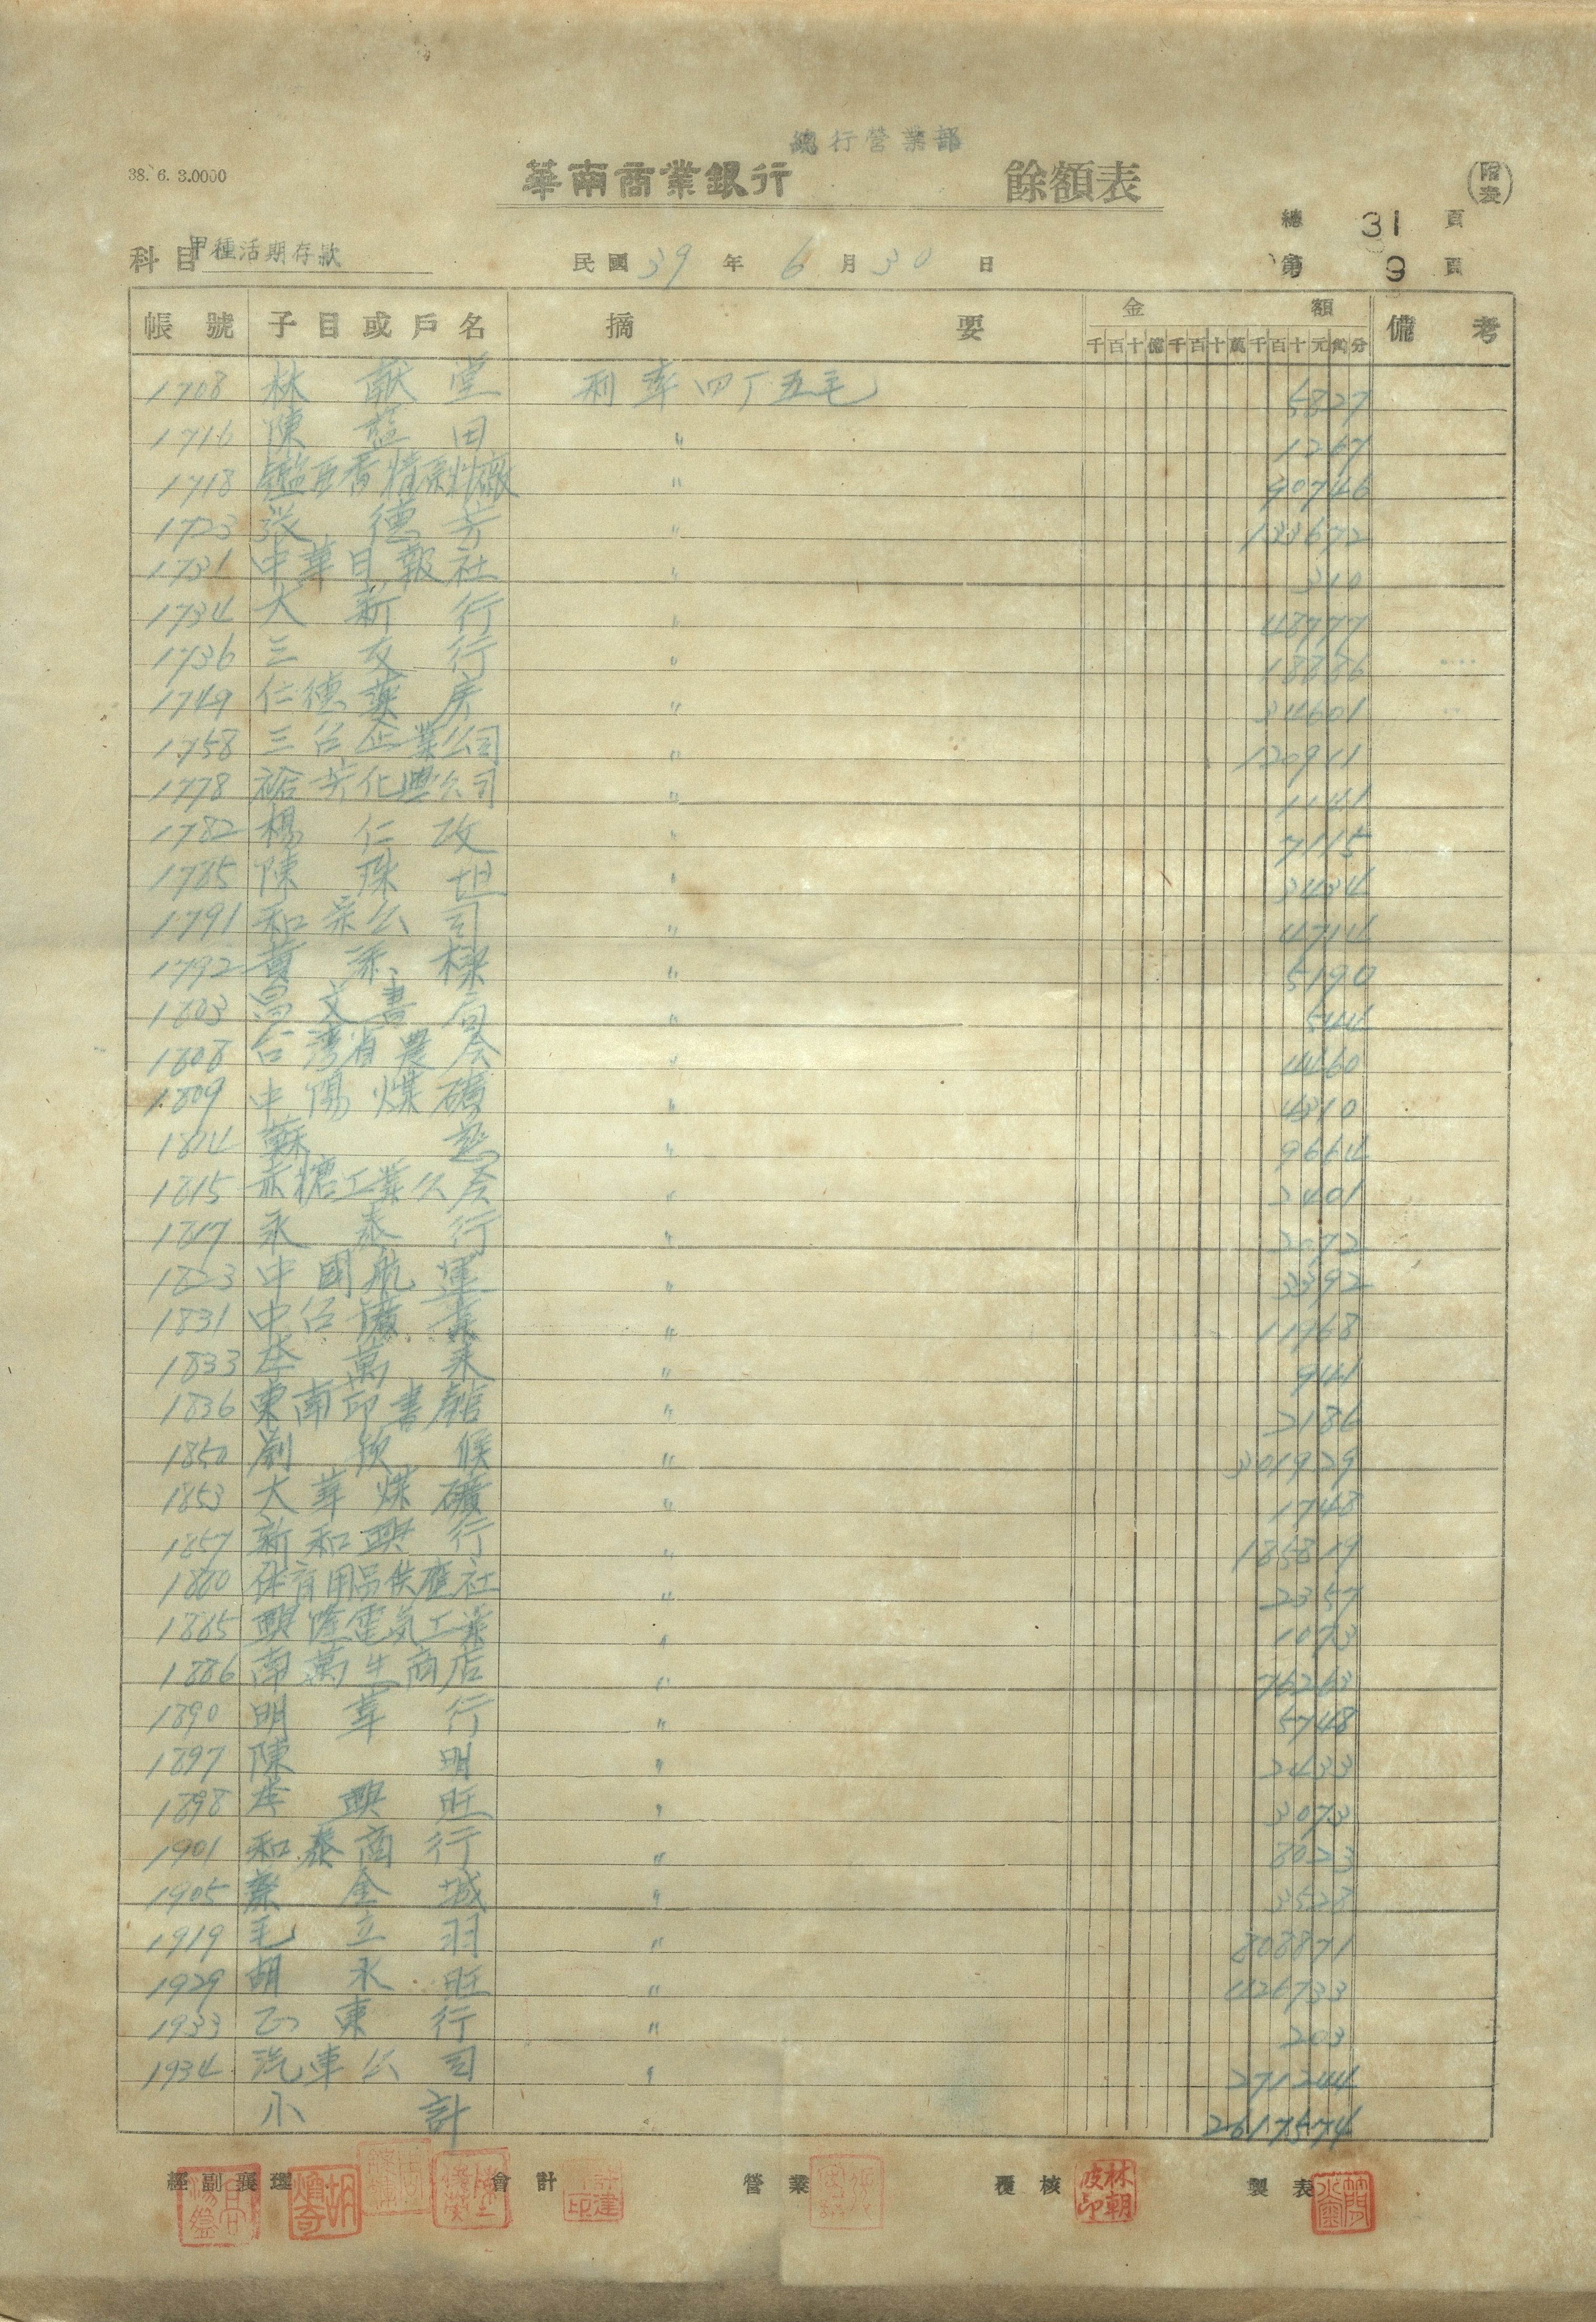 總行營業部
38. 6. 3.0000 華南商業銀行 餘額表 (附表)
總 31 頁
科目 甲種活期存款 民國 39 年 6 月 30 日 第 9 頁
帳號 子目或戶名 摘要 金額 備考
千百十億千百十萬千百十元角分
1708 林献堂 利率四丁五毛 5827
1716 陳益田 〃 1267
1718 香精料廠 〃 90746
1723 張德芳 〃 133672
1731 中華日報社 〃 310
1734 大新行 〃 48777
1736 三友行 〃 18886
1749 仁德藥房 〃 34601
1758 三台企業公司 〃 120911
1778 裕芳化興公司 〃 1141
1782 楊仁改 〃 7115
1785 陳珠坦 〃 3434
1791 和榮公司 〃 4714
1792 黃添樑 〃 5190
1803 昌文書局 〃 544
1808 台灣省農会 〃 4460
1809 中陽煤礦 〃 4310
1814 蘇 〃 9664
1815 赤糖工業公会 〃 2401
1817 永泰行 〃 3072
1823 中國航運 〃 3392
1831 中台礦業 〃 11968
1833 李萬来 〃 941
1836 東南印書館 〃 2186
1850 劉欽候 〃 301929
1853 大華煤礦 〃 1748
1857 新和興行 〃 185819
1860 体育用品供應社 〃 2357
1865 興隆電気工業 〃 1073
1886 南萬生商店 〃 76263
1890 明華行 〃 5748
1897 陳明 〃 2433
1898 李興旺 〃 3073
1901 和泰商行 〃 8023
1905 葉金城 〃 3528
1919 毛立羽 〃 808871
1929 胡永旺 〃 426733
1933 正東行 〃 203
1934 汽車公司 〃 271244
小計 2617574
經副襄理 會計 營業 覆核 製表
林朝